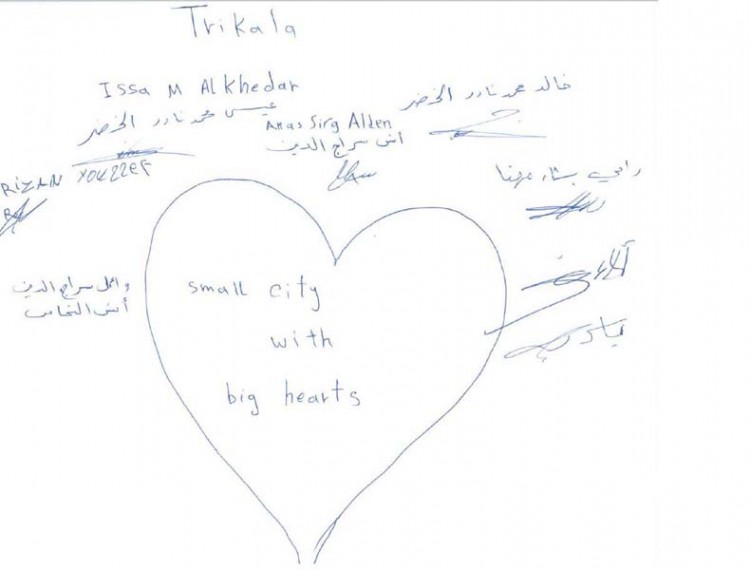 Trikala
Issa M Alkhedar
عيسى محمد نادر الخضر
Anas Sirg Alden
أنس سراج الدين
خالد محمد نادر الخضر
RIZAN YOUZZEF
رامي بشار مهنا
آلاء
وائل سراج الدين
أنس النحاس
small city
with
big hearts